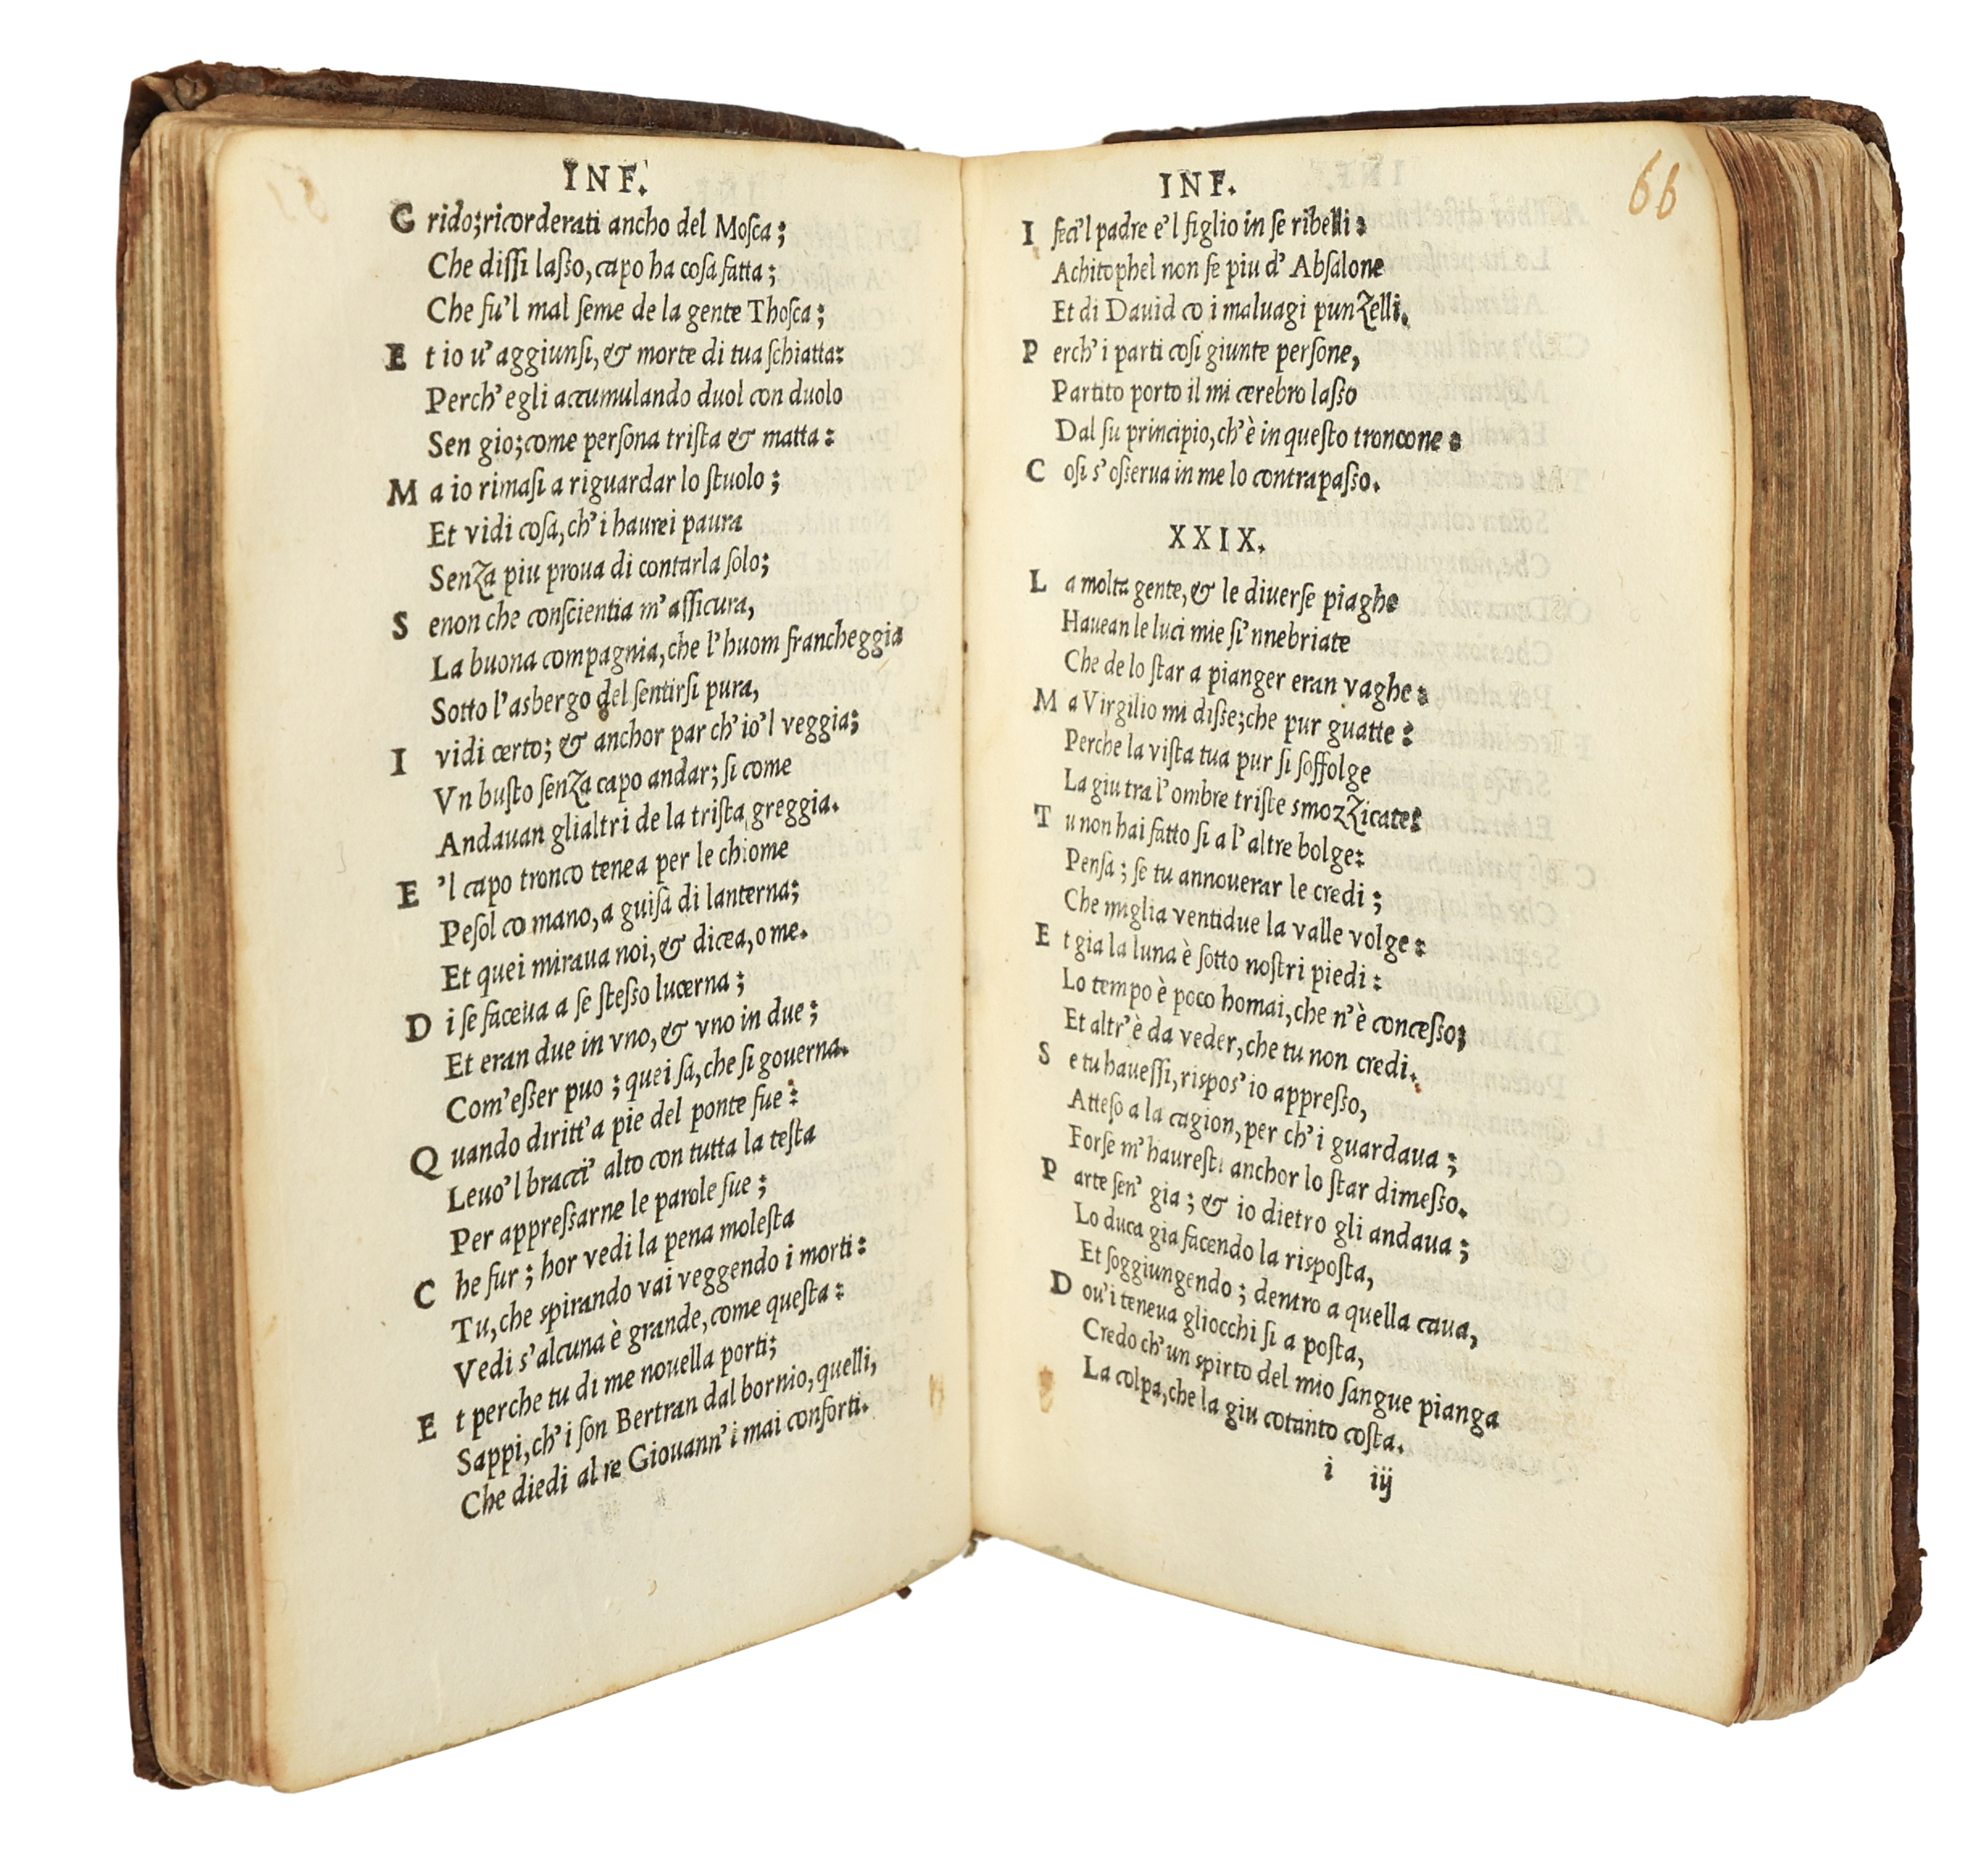 INF.
G rido; ricorderati ancho del Moſca;
Che diſſi laſso, capo ha coſa fatta;
Che fu'l mal ſeme de la gente Thoſca;
E t io u'aggiunſi, & morte di tua ſchiatta:
Perch'egli accumulando duol con duolo
Sen gio; come perſona triſta & matta:
M a io rimaſi a riguardar lo ſtuolo;
Et vidi coſa, ch'i haurei paura
Senza piu proua di contarla ſolo;
S enon che conſcientia m'aſſicura,
La buona compagnia, che l'huom francheggia
Sotto l'asbergo del ſentirſi pura,
I vidi certo; & anchor par ch'io'l veggia;
Vn buſto ſenza capo andar; ſi come
Andauan glialtri de la triſta greggia.
E 'l capo tronco tenea per le chiome
Peſol co mano, a guiſa di lanterna;
Et quei miraua noi, & dicea, o me.
D i ſe faceua a ſe ſteſso lucerna;
Et eran due in vno, & vno in due;
Com'eſser puo; quei ſa, che ſi gouerna.
Q uando diritt'a pie del ponte fue:
Leuo'l bracci' alto con tutta la teſta
Per appreſsarne le parole ſue;
C he fur; hor vedi la pena moleſta
Tu, che spirando vai veggendo i morti:
Vedi s'alcuna è grande, come queſta:
E t perche tu di me nouella porti;
Sappi, ch'i ſon Bertran dal bornio, quelli,
Che diedi al re Giouann'i mai conforti.
66
INF.
I feci'l padre e'l figlio in ſe ribelli:
Achitophel non fe piu d'Abſalone
Et di Dauid co i maluagi punzelli.
P erch'i parti coſi giunte perſone,
Partito porto il mi cerebro laſso
Dal ſu principio, ch'è in queſto troncone:
C oſi s'oſserua in me lo contrapaſso.
XXIX.
L a molta gente, & le diuerſe piaghe
Hauean le luci mie ſi'nnebriate
Che de lo ſtar a pianger eran vaghe:
M a Virgilio mi diſse; che pur guatte:
Perche la viſta tua pur ſi ſoffolge
La giu tra l'ombre triſte smozzicate?
T u non hai fatto ſi a l'altre bolge:
Penſa; ſe tu annouerar le credi;
Che miglia ventidue la valle volge:
E t gia la luna è ſotto noſtri piedi:
Lo tempo è poco homai, che n'è conceſso;
Et altr'è da veder, che tu non credi.
S e tu haueſſi, rispos'io appreſſo,
Atteſo a la cagion, per ch'i guardaua;
Forſe m'haureſti anchor lo ſtar dimeſso.
P arte ſen' gia; & io dietro gli andaua;
Lo duca gia facendo la riſpoſta,
Et ſoggiungendo; dentro a quella caua,
D ou'i teneua gliocchi ſi a poſta,
Credo ch'un spirto del mio ſangue pianga
La colpa, che la giu cotanto coſta.
i iij